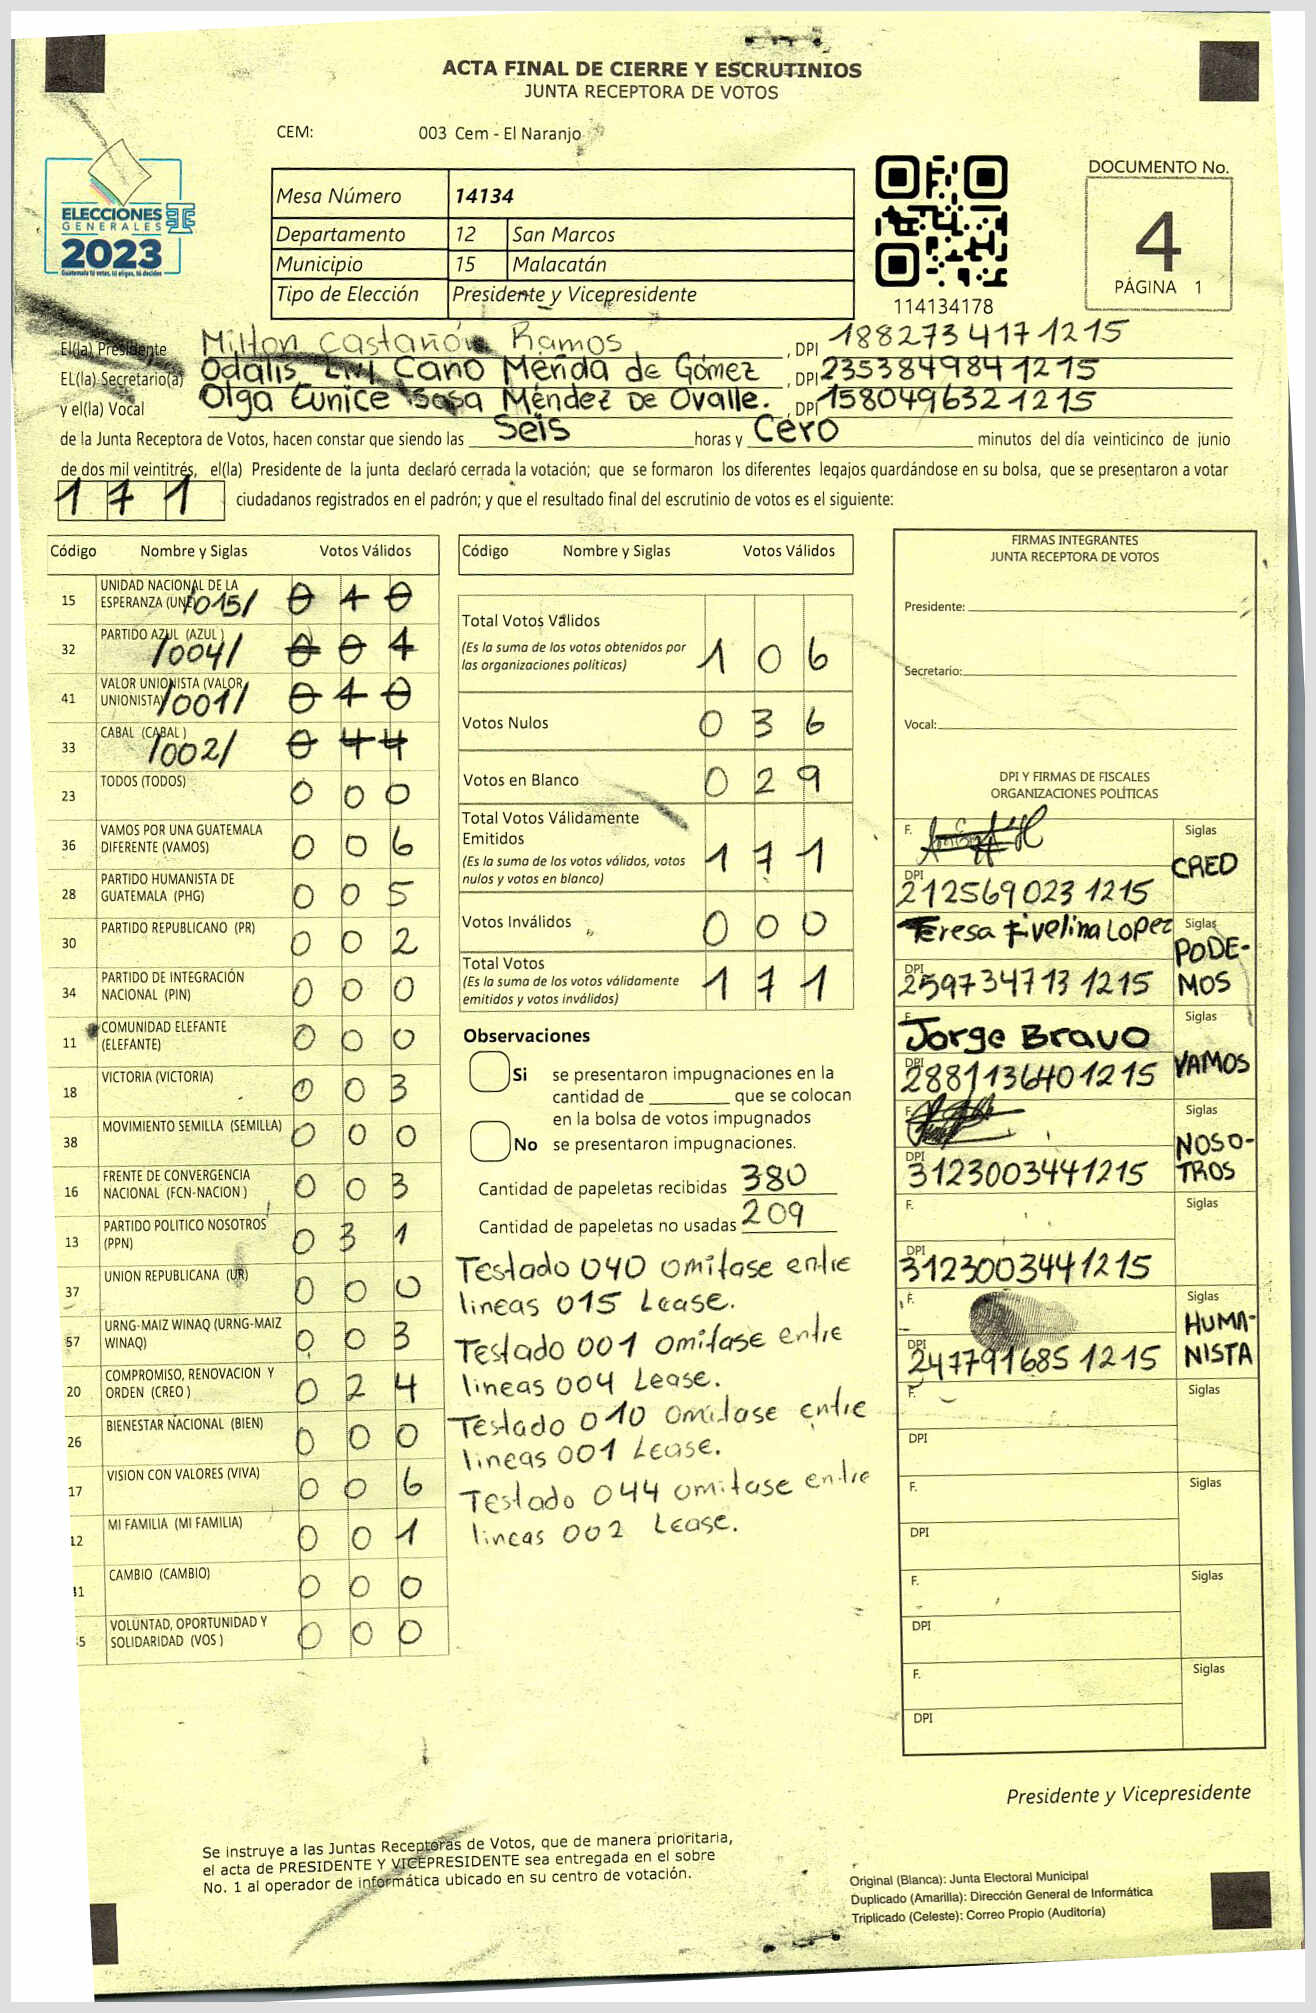 ACTA FINAL DE CIERRE Y ESCRUTINIOS
JUNTA RECEPTORA DE VOTOS
CEM: 003 Cem - El Naranjo
ELECCIONES
GENERALES
2023
Guatemala tú votas, tú eliges, tú decides
Mesa Número 14134
Departamento 12 San Marcos
Municipio 15 Malacatán
Tipo de Elección Presidente y Vicepresidente
114134178
DOCUMENTO No.
4
PÁGINA 1
El(la) Presidente Milton Castañón Ramos, DPI 1882734171215
EL(la) Secretario(a) Odalis Cano Mérida de Gómez, DPI 2353849841215
y el(la) Vocal Olga Eunice Sosa Méndez De Ovalle., DPI 1580496321215
de la Junta Receptora de Votos, hacen constar que siendo las Seis horas y Cero minutos del día veinticinco de junio
de dos mil veintitrés, el(la) Presidente de la junta declaró cerrada la votación; que se formaron los diferentes legajos guardándose en su bolsa, que se presentaron a votar
171 ciudadanos registrados en el padrón; y que el resultado final del escrutinio de votos es el siguiente:
Código Nombre y Siglas Votos Válidos
15 UNIDAD NACIONAL DE LA
ESPERANZA (UNE) /015/ 0 4 0
32 PARTIDO AZUL (AZUL) /004/ 0 0 1
41 VALOR UNIONISTA (VALOR
UNIONISTA) /001/ 0 1 0
33 CABAL (CABAL) /002/ 0 4 4
23 TODOS (TODOS) 0 0 0
36 VAMOS POR UNA GUATEMALA
DIFERENTE (VAMOS) 0 0 6
28 PARTIDO HUMANISTA DE
GUATEMALA (PHG) 0 0 5
30 PARTIDO REPUBLICANO (PR) 0 0 2
34 PARTIDO DE INTEGRACIÓN
NACIONAL (PIN) 0 0 0
11 COMUNIDAD ELEFANTE
(ELEFANTE) 0 0 0
18 VICTORIA (VICTORIA) 0 0 3
38 MOVIMIENTO SEMILLA (SEMILLA) 0 0 0
16 FRENTE DE CONVERGENCIA
NACIONAL (FCN-NACION) 0 0 3
13 PARTIDO POLITICO NOSOTROS
(PPN) 0 3 1
37 UNION REPUBLICANA (UR) 0 0 0
57 URNG-MAIZ WINAQ (URNG-MAIZ
WINAQ) 0 0 3
20 COMPROMISO, RENOVACION Y
ORDEN (CREO) 0 2 4
26 BIENESTAR NACIONAL (BIEN) 0 0 0
17 VISION CON VALORES (VIVA) 0 0 6
12 MI FAMILIA (MI FAMILIA) 0 0 1
31 CAMBIO (CAMBIO) 0 0 0
5 VOLUNTAD, OPORTUNIDAD Y
SOLIDARIDAD (VOS) 0 0 0
Código Nombre y Siglas Votos Válidos
Total Votos Válidos
(Es la suma de los votos obtenidos por
las organizaciones políticas) 1 0 6
Votos Nulos 0 3 6
Votos en Blanco 0 2 9
Total Votos Válidamente
Emitidos
(Es la suma de los votos válidos, votos
nulos y votos en blanco) 1 7 1
Votos Inválidos 0 0 0
Total Votos
(Es la suma de los votos válidamente
emitidos y votos inválidos) 1 7 1
Observaciones
Si se presentaron impugnaciones en la
cantidad de ________ que se colocan
en la bolsa de votos impugnados
No se presentaron impugnaciones.
Cantidad de papeletas recibidas 380
Cantidad de papeletas no usadas 209
Testado 040 omitase entre
lineas 015 Lease.
Testado 001 omitase entre
lineas 004 Lease.
Testado 010 omitase entre
lineas 001 Lease.
Testado 044 omitase entre
lineas 002 Lease.
FIRMAS INTEGRANTES
JUNTA RECEPTORA DE VOTOS
Presidente:
Secretario:
Vocal:
DPI Y FIRMAS DE FISCALES
ORGANIZACIONES POLÍTICAS
F. Siglas
CREO
DPI
2125690231215
Teresa Eivelina Lopez Siglas
PODE-
MOS
DPI
2597347131215
F. Siglas
Jorge Bravo
VAMOS
DPI
2881136401215
F. Siglas
NOSO-
TROS
DPI
3123003441215
F. Siglas
DPI
3123003441215
F. Siglas
HUMA-
NISTA
DPI
2477916851215
F. Siglas
DPI
F. Siglas
DPI
F. Siglas
DPI
F. Siglas
DPI
Presidente y Vicepresidente
Se instruye a las Juntas Receptoras de Votos, que de manera prioritaria,
el acta de PRESIDENTE Y VICEPRESIDENTE sea entregada en el sobre
No. 1 al operador de informática ubicado en su centro de votación.
Original (Blanca): Junta Electoral Municipal
Duplicado (Amarilla): Dirección General de Informática
Triplicado (Celeste): Correo Propio (Auditoría)